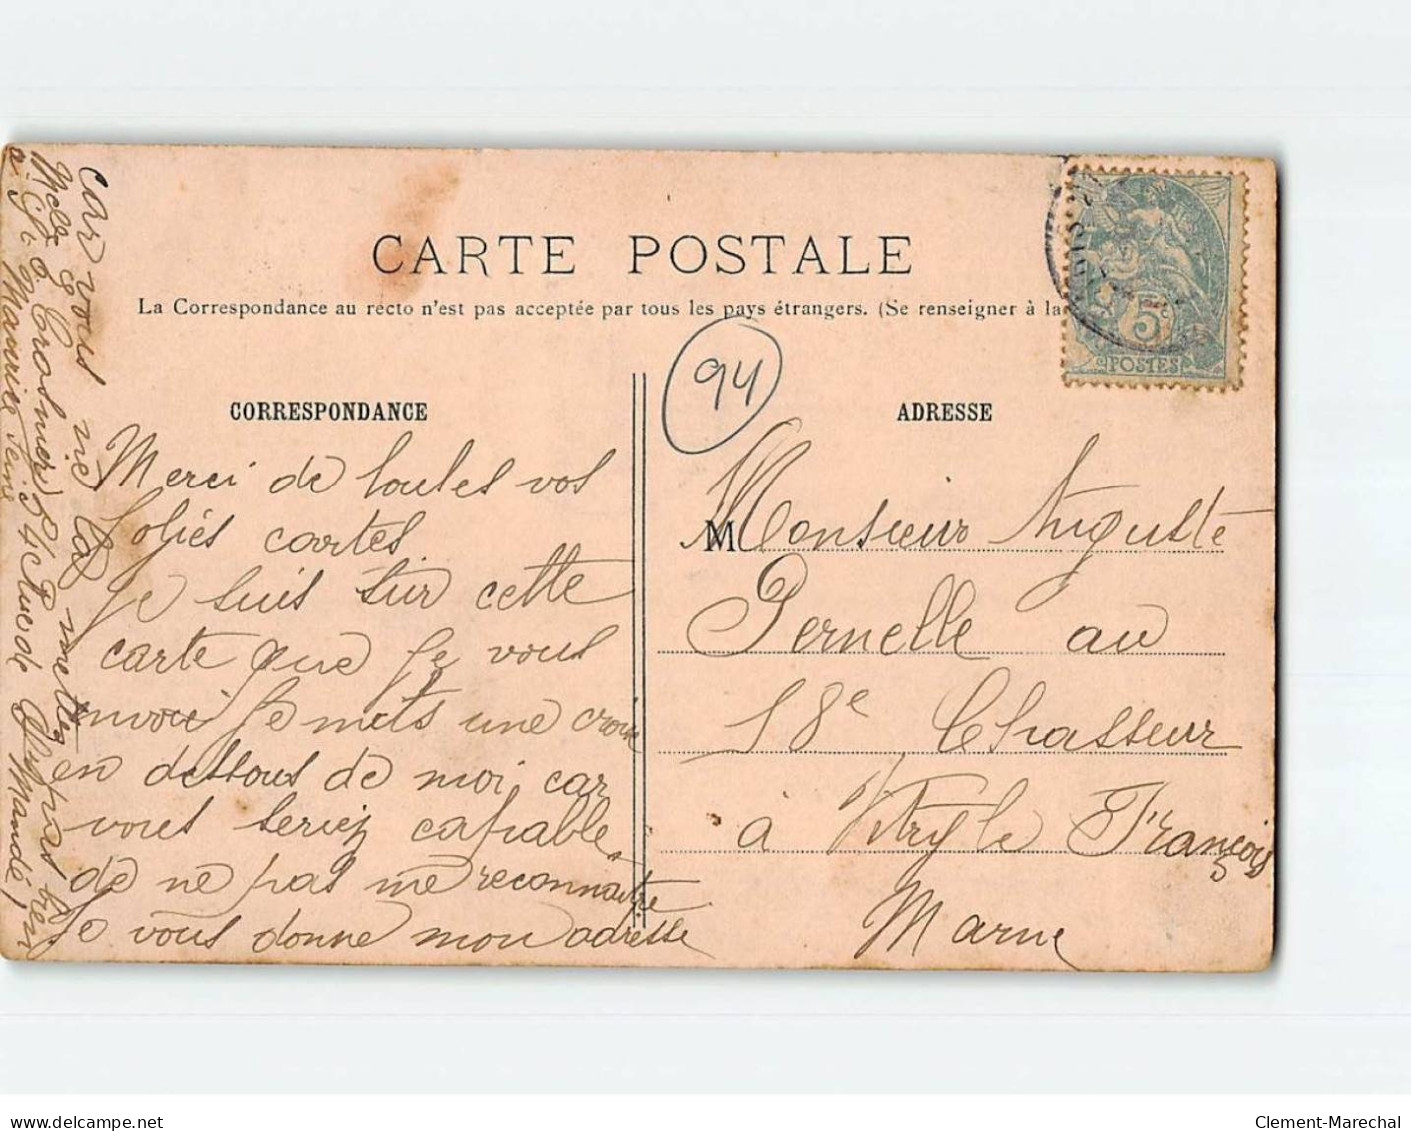 CARTE POSTALE
La Correspondance au recto n'est pas acceptée par tous les pays étrangers. (Se renseigner à la
5c
POSTES
94
CORRESPONDANCE
Merci de toutes vos
jolies cartes
Je suis sur cette
carte que je vous
envoie Je mets une croix
en dessous de moi car
vous seriez capable
de ne pas me reconnaître
Je vous donne mon adresse
car vous ne la mettez pas bien
Melle G Crosnier 84 Rue de
à St Maurice Seine St Mandé
ADRESSE
M Monsieur Auguste
Pernelle au
18e Chasseur
à Vitry le François
Marne
delcampe.net
Clement-Marechal